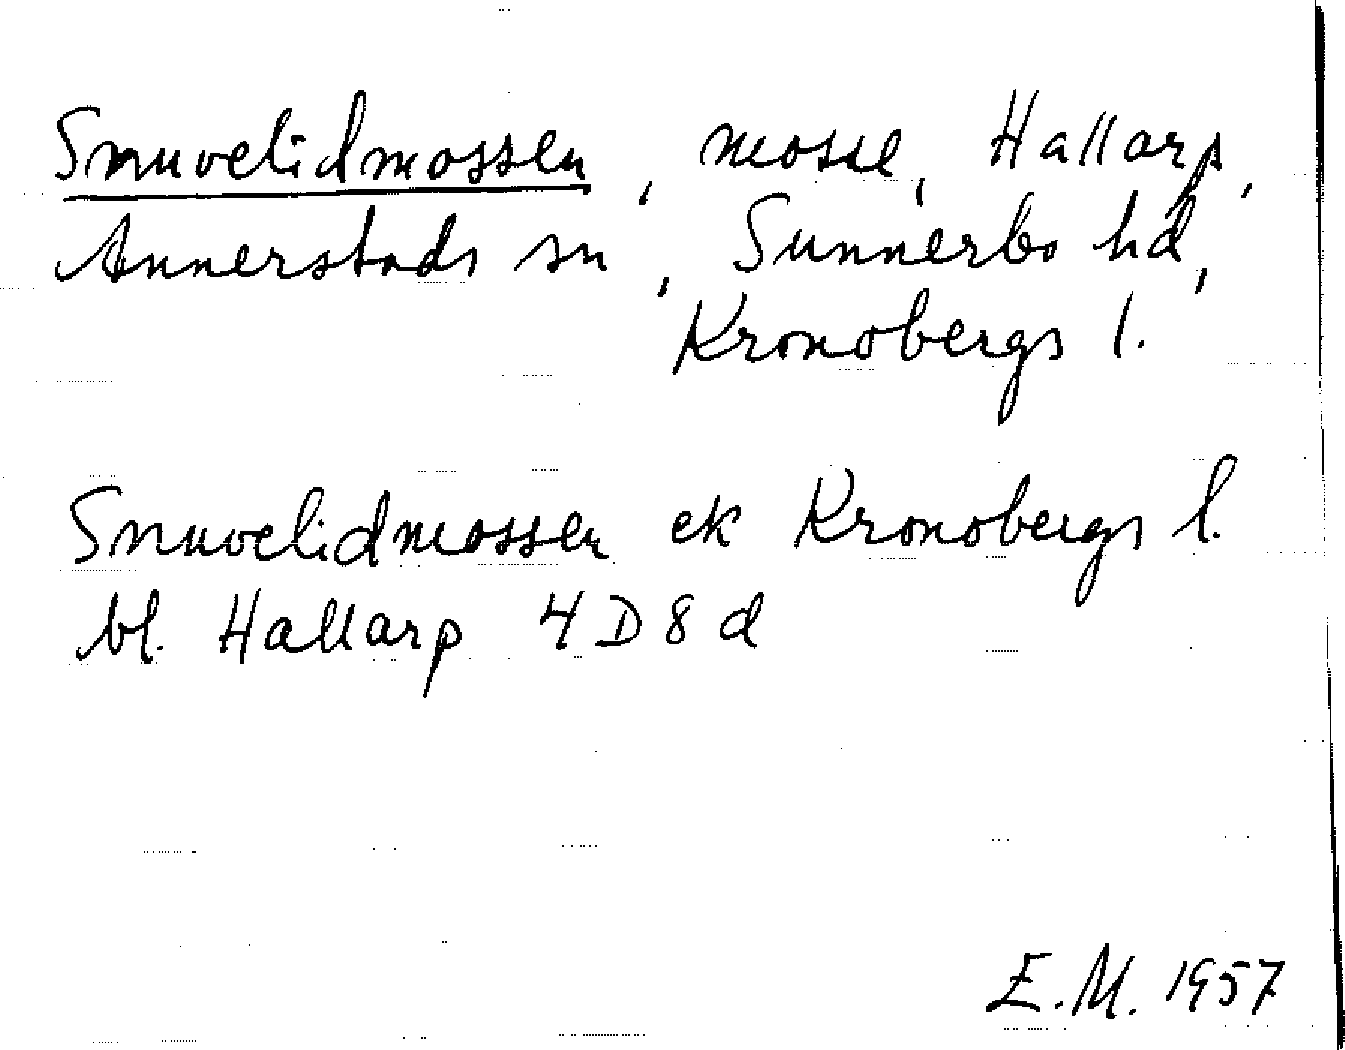 Snuvelidmossen, mosse, Hallarp,
Annerstads sn, Sunnerbo hd,
Kronobergs l.
Snuvelidmossen ek Kronobergs l.
bl. Hallarp 4D8d
E.M. 1957